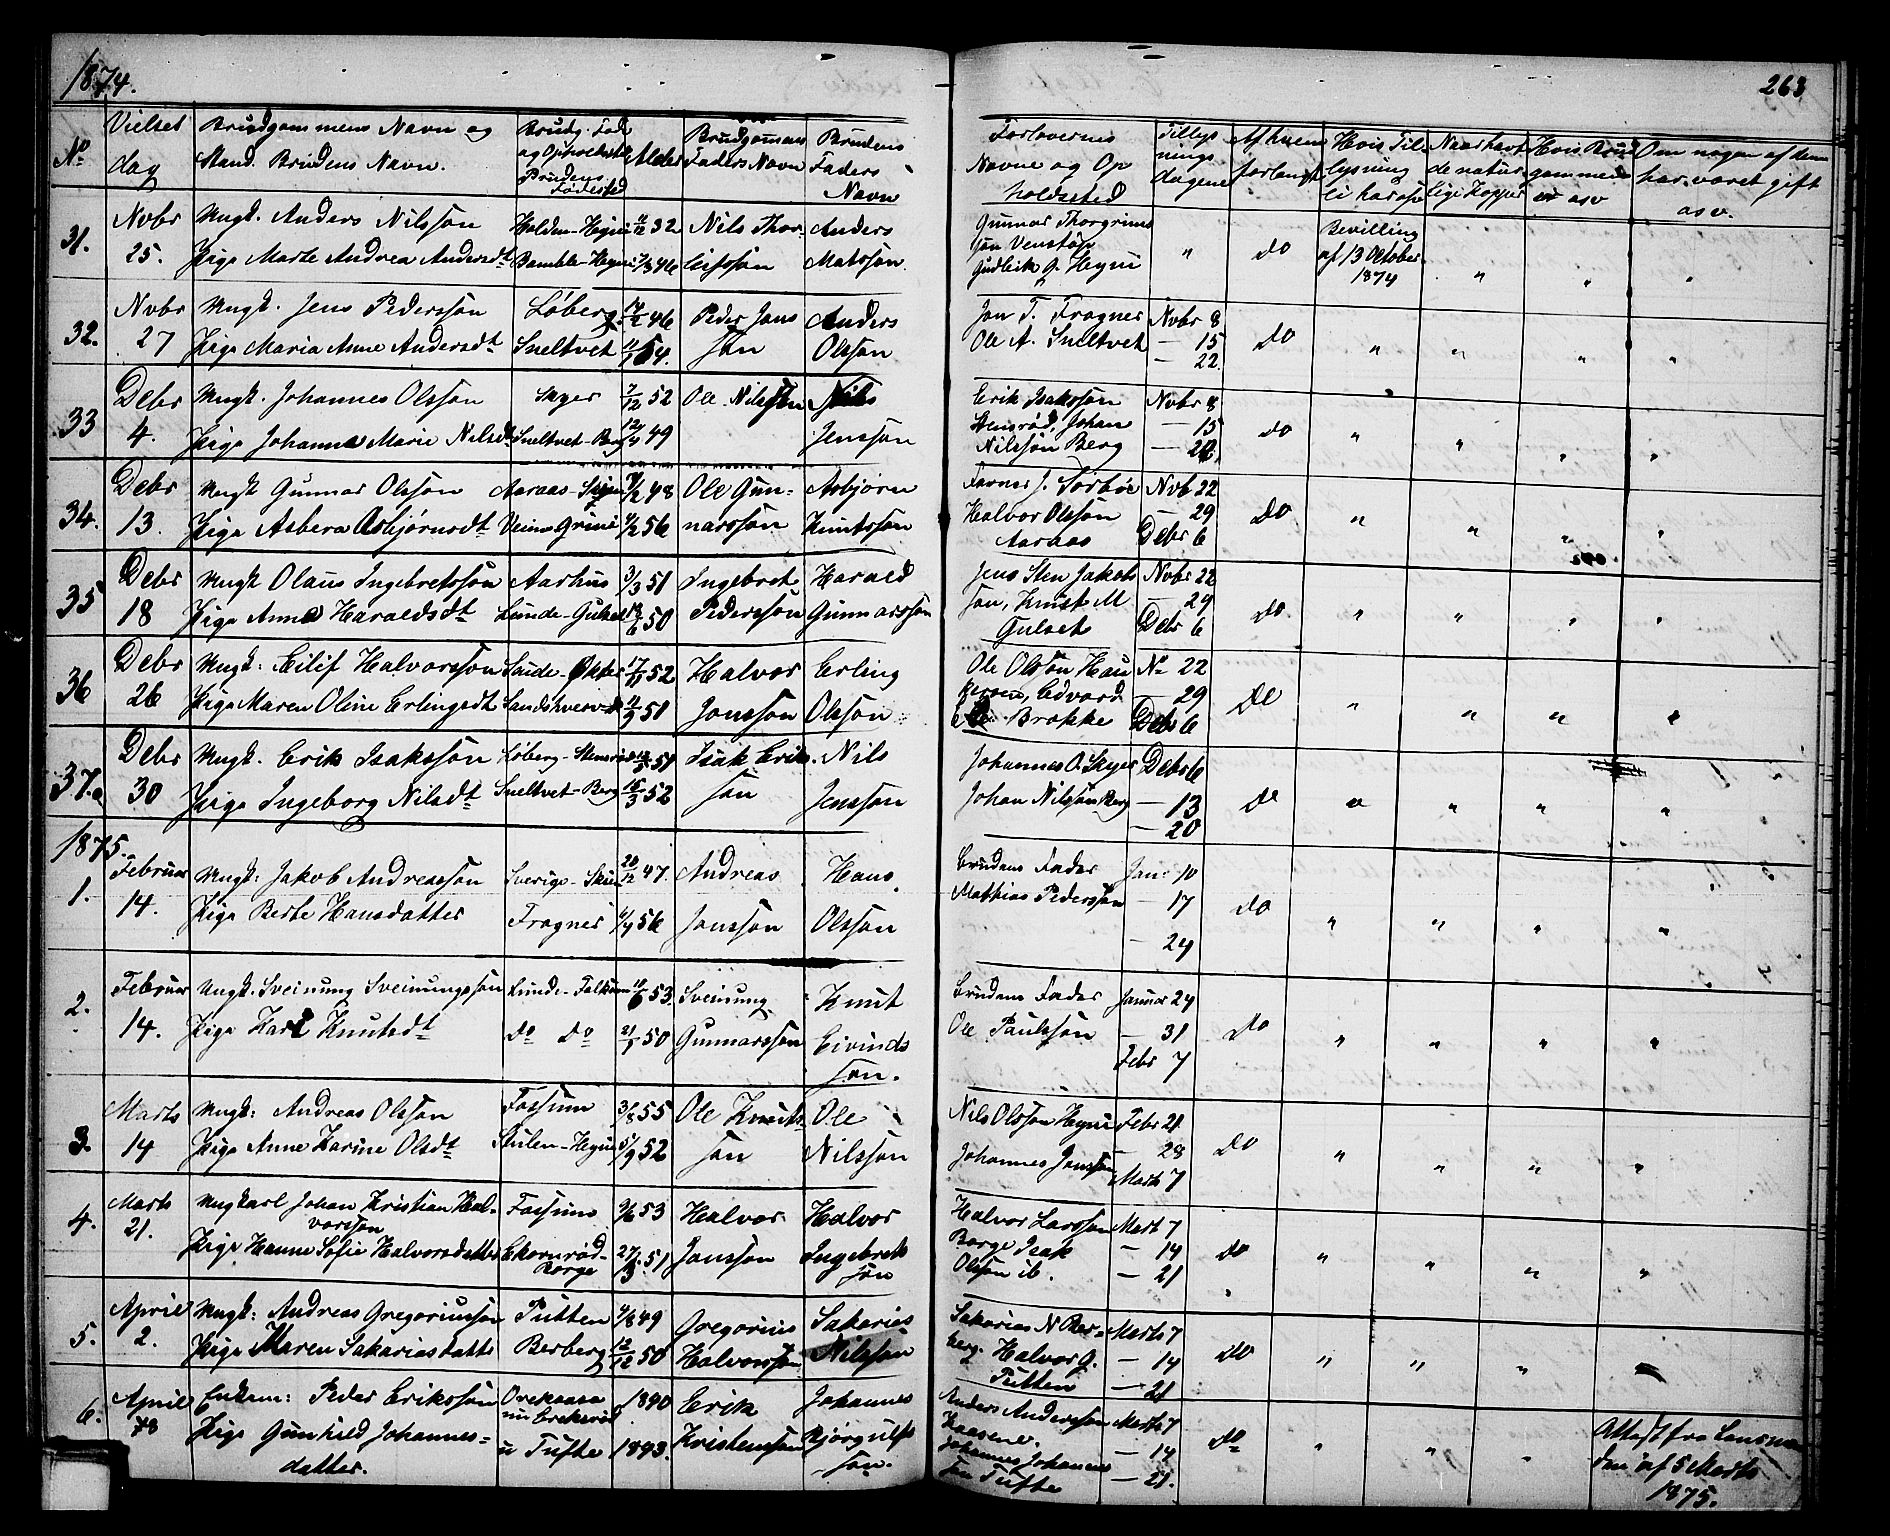 1874.
263
No
Vielses
dag
Brudgommens Navn og
Stand. Brudens Navn.
Brudg. Føde
og Opholdsted
Brudens
Fødested
Alder
Brudgomens
Faders Navn
Brudens
Faders
Navn
Forlovernes
Navne og Op
holdssted
Tillys
nings
dagene
Af hvem
forlangt
Hvis Til
lysning
Naar havt
de natur
lige Kopper
Hvis Brud
gommen
er asv
Om nogen af dem
har været gift
asv.
31.
Nvbr
25.
Ungk. Anders Nilsson
Pige Marte Andrea Andersdt
Holden-Hyni
Bamble-Hyni
32
46
Nils Thor-
leifsson
Anders
Matsson.
Gunnar Thorgrims
son Venstøp
Gudleik G. Hyni
"
do
Bevilling
af 13 October
1874
"
"
"
32.
Nvbr
27
Ungk. Jens Pedersson
Pige Maria Anne Andersdt
Løberg
Sneltvet
14/2 46
54.
Peder Jons
son
Anders
Olsson
Jon T. Frogner
Ole A. Sneltvet
Nvbr 8
— 15
— 22
do
"
"
"
"
33
Debr
4.
Ungk. Johannes Olsson
Pige Johanne Marie Nilsdt
Skyer
Sneltvet-Berg
7/12 52
12/4 49
Ole Nilsson
Nils
Jensson
Erik Isaksson
Stensrød, Johan
Nilsson Berg
Nvbr 8
— 15
— 22
do
"
"
"
"
34.
Debr
13.
Ungk Gunnar Olsson
Pige Asbera Asbjørnsdt
Aaraas-Skien
Grini
48
56
Ole Gun-
narsson
Asbjørn
Knutsson
J. Sørbøe
Halvor Olsson
Aaraas
Nvb 22
— 29
Debr 6
do
"
"
"
"
35
Debr
18
Ungk Olaus Ingebretsson
Pige Anne Haraldsdt
Aarhus
Lunde-Gulset
3/3 51
50
Ingebret
Pedersson
Harald
Gunnarsson
Jens Sten Jakobs
son, Knut M
Gulset
Nvbr 22
— 29
Debr 6
do
"
"
"
"
36
Debr
26
Ungk: Eilif Halvorsson
Pige Maren Oline Erlingsdt
Saude-
Sandshverv
52
11/9 51
Halvor
Jonsson
Erling
Olsson
Ole Olsson Hau
Edvard
Brokke
N— 22
— 29
Debr 6
do
"
"
"
"
37.
Debr
30
Ungk. Erik Isaksson
Pige Ingeborg Nilsdt
Løberg-Stensrød
Sneltvet-Berg
51
15/3 52
Isak Erik
son
Nils
Jensson
Johannes O. Skyer
Johan Nilsson Berg
Debr 6
— 13
— 20
do
"
"
"
"
1875.
1.
Februar
14.
Ungk: Jakob Andreasson
Pige Berte Hansdatter
Sverige-Skien
Frogner
20/12 47.
56
Andreas
Jonsson
Hans
Olsson
Brudens Fader
Mathias Pedersson
Jan: 10
— 17
— 24
do
"
"
"
"
2.
Februar
14.
Ungk: Sveinung Sveinungsson
Pige Kari Knutsdt
Lunde-Falkum
Do Do
53.
21/1 50
Sveinung
Gunnarsson
Knut
Eivinds
son.
Brudens Fader
Ole Paulsson
Januar 24
— 31
Febr 7
do
"
"
"
"
3.
Marts
14
Ungk: Andreas Olsson
Pige Anne Karine Olsdt
Fossum
Stulen-Hyni
3/8 55
5/9 52
Ole Knuts
son
Ole
Nilsson
Nils Olsson Hyni
Johannes Jonsson
Febr 21
— 28
Marts 7
do
"
"
"
"
4.
Marts
21.
Ungkarl Johan Kristian Hal-
vorsson
Pige Hanne Sofie Halvorsdatter
Fossum
Ekornrød-
Borge
53
27/3 51
Halvor
Jonsson
Halvor
Ingebret
son
Halvor Larsson
Borge Isak
Olsson ib.
Mart 7
— 14
— 21
do
"
"
"
"
5.
April
2.
Ungk: Andreas Gregoriusson
Pige Maren Sakariasdatte
Putten
Berberg
49
12/12 50
Gregorius
Halvorsson
Sakarias
Nilsson
Sakarias N Ber-
berg. Halvor G.
Putten
Marts 7
— 14
— 21
do
"
"
"
6.
April
Enkem: Peder Eriksson
Pige Gunhild Johannes-
datter.
u Tufte
Erik
Kristensson
Johannes
Bjørgulfs
son.
Anders Andersson
Kaasene.
Johannes Johannes
son Tufte
Marts 7
— 14
— 21.
do
"
"
"
Attest fra Lensman
den af 5 Marts
1875.